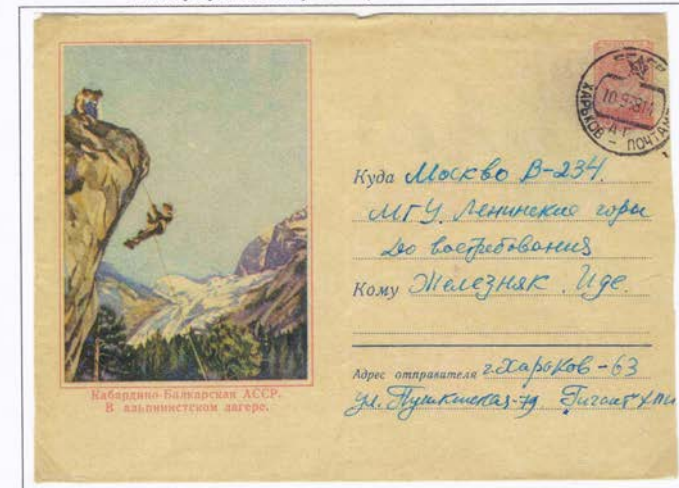 ХАРЬКОВ - ПОЧТАМТ
Куда Москва В-234.
МГУ. Ленинские горы
До востребования
Кому Железняк Иде.
Адрес отправителя г. Харьков-63
ул. Пушкинская-79 Гигант ХПИ
Кабардино-Балкарская АССР.
В альпинистском лагере.